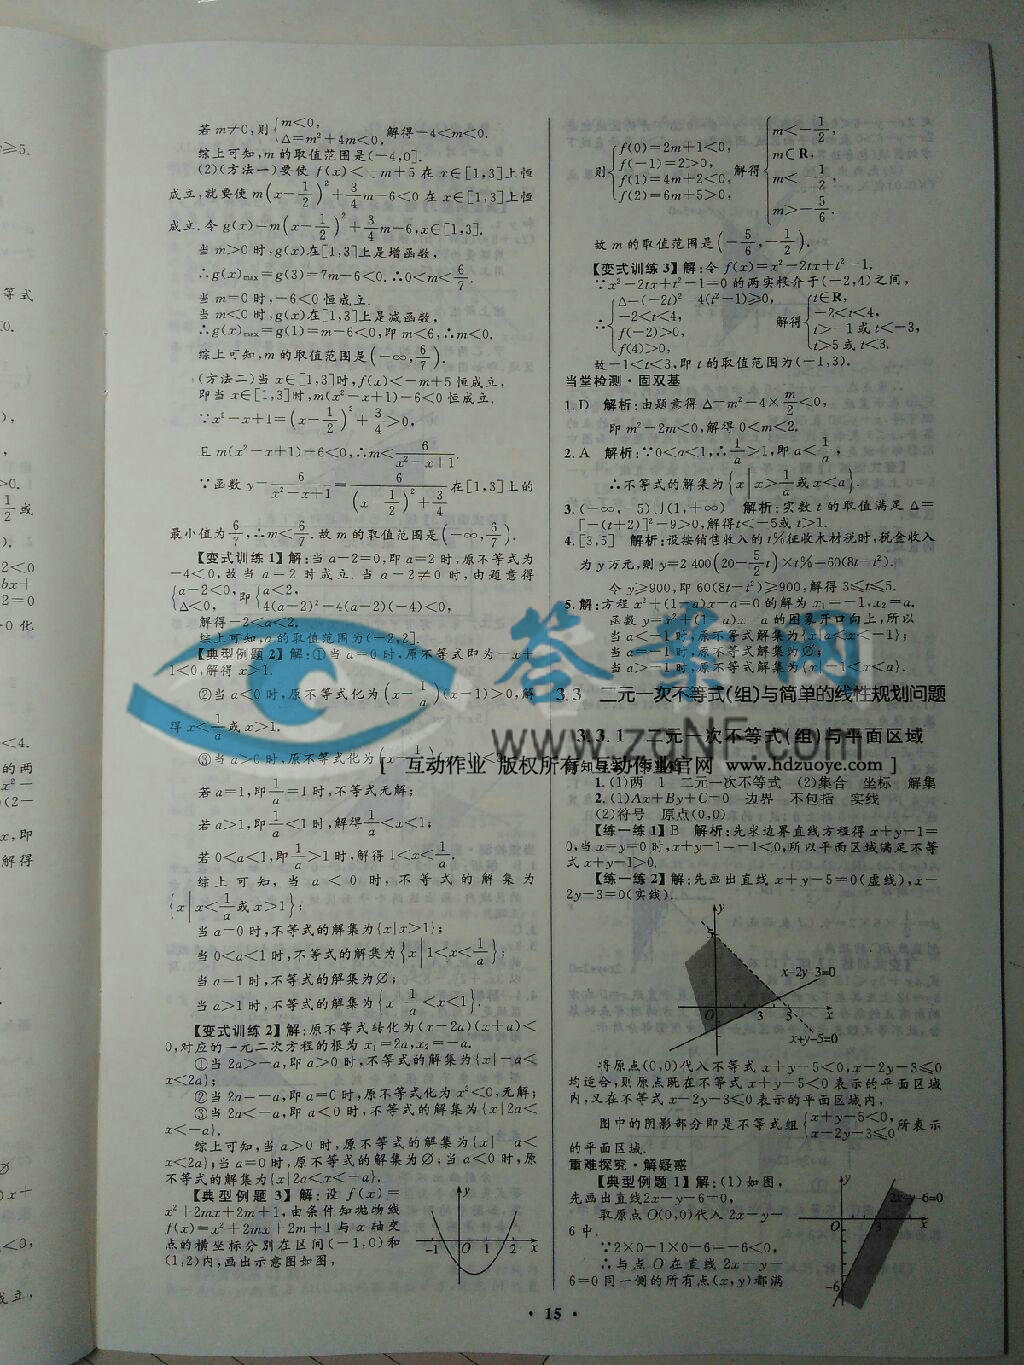 若m≠0,则{m<0, Δ=m²+4m<0, 解得-4<m<0.
综上可知,m的取值范围是(-4,0].
(2)(方法一)要使f(x)<-m+5在x∈[1,3]上恒
成立,就要使m(x-1/2)²+3/4m-6<0在x∈[1,3]上恒
成立.令g(x)=m(x-1/2)²+3/4m-6,x∈[1,3].
当m>0时,g(x)在[1,3]上是增函数,
∴g(x)max=g(3)=7m-6<0.∴0<m<6/7.
当m=0时,-6<0恒成立.
当m<0时,g(x)在[1,3]上是减函数,
∴g(x)max=g(1)=m-6<0,即m<6,∴m<0.
综上可知,m的取值范围是(-∞,6/7).
(方法二)当x∈[1,3]时,f(x)<-m+5恒成立,
即当x∈[1,3]时,m(x²-x+1)-6<0恒成立.
∵x²-x+1=(x-1/2)²+3/4>0,
且m(x²-x+1)-6<0,∴m<6/(x²-x+1).
∵函数y=6/(x²-x+1)=6/((x-1/2)²+3/4)在[1,3]上的
最小值为6/7,∴m<6/7.故m的取值范围是
【变式训练1】解:当a-2=0,即a=2时,原不等式为
-4<0,故当a=2时成立.当a-2≠0时,由题意得
{a-2<0, Δ<0, 即{a<2, 4(a-2)²-4(a-2)(-4)<0,
解得-2<a<2.
综上可知,a的取值范围为(-2,2].
【典型例题2】解:①当a=0时,原不等式即为-x+
1<0,解得x>1.
②当a<0时,原不等式化为(x-1/a)(x-1)>0,解
得x<1/a或x>1.
③当a>0时,原不等式化为
若a=1,即1/a=1时,不等式无解;
若a>1,即1/a<1时,解得1/a<x<1;
若0<a<1,即1/a>1时,解得1<x<1/a.
综上可知,当a<0时,不等式的解集为
{x|x<1/a或x>1};
当a=0时,不等式的解集为{x|x>1};
当0<a<1时,不等式的解集为{x|1<x<1/a};
当a=1时,不等式的解集为∅;
当a>1时,不等式的解集为{x|1/a<x<1}.
【变式训练2】解:原不等式转化为(x-2a)(x+a)<
0,对应的一元二次方程的根为x₁=2a,x₂=-a.
①当2a>-a,即a>0时,不等式的解集为{x|-a<
x<2a};
②当2a=-a,即a=0时,原不等式化为x²<0,无解;
③当2a<-a,即a<0时,不等式的解集为{x|2a<
x<-a}.
综上可知,当a>0时,原不等式的解集为{x|-a<
x<2a};当a=0时,原不等式的解集为∅;当a<0时,原
不等式的解集为{x|2a<x<-a}.
【典型例题3】解:设f(x)=
x²+2mx+2m+1,由条件知抛物线
f(x)=x²+2mx+2m+1与x轴交
点的横坐标分别在区间(-1,0)和
(1,2)内,画出示意图如图,
y
-1 O 1 2 x
则{f(0)=2m+1<0, f(-1)=2>0, f(1)=4m+2<0, f(2)=6m+5>0, 解得{m<-1/2, m∈R, m<-1/2, m>-5/6.
故m的取值范围是(-5/6,-1/2).
【变式训练3】解:令f(x)=x²-2tx+t²-1.
∵x²-2tx+t²-1=0的两实根介于(-2,4)之间,
∴{Δ=(-2t)²-4(t²-1)≥0, -2<t<4, f(-2)>0, f(4)>0, 解得{t∈R, -2<t<4, t>-1或t<-3, t>5或t<3.
故-1<t<3,即t的取值范围为(-1,3).
当堂检测·固双基
1.D 解析:由题意得Δ=m²-4×m/2<0,
即m²-2m<0,解得0<m<2.
2.A 解析:∵0<a<1,∴1/a>1,即a<1/a,
∴不等式的解集为{x|x>1/a或x<a}.
3.(-∞,-5)∪(1,+∞) 解析:实数t的取值满足Δ=
[-(t+2)]²-9>0,解得t<-5或t>1.
4.[3,5] 解析:设按销售收入的t%征收木材税时,税金收入
为y万元,则y=2 400(20-5/2t)×t%=60(8t-t²).
令y≥900,即60(8t-t²)≥900,解得3≤t≤5.
5.解:方程x²+(1-a)x-a=0的解为x₁=-1,x₂=a.
函数y=x²+(1-a)x-a的图象开口向上,所以
当a<-1时,原不等式解集为{x|a<x<-1};
当a=-1时,原不等式解集为∅;
当a>-1时,原不等式解集为{x|-1<x<a}.
答案网
www.zqNF.com
3.3 二元一次不等式(组)与简单的线性规划问题
3.3.1 二元一次不等式(组)与平面区域
[ 互动作业 版权所有 互动作业官网 www.hdzuoye.com ]
1.(1)两 1 二元一次不等式 (2)集合 坐标 解集
2.(1)Ax+By+C=0 边界 不包括 实线
(2)符号 原点(0,0)
【练一练1】B 解析:先求边界直线方程得x+y-1=
0,当x=y=0时,x+y-1=-1<0,所以平面区域满足不等
式x+y-1>0.
【练一练2】解:先画出直线x+y-5=0(虚线),x-
2y-3=0(实线).
y
5
x-2y-3=0
O 3 5 x
x+y-5=0
将原点(0,0)代入不等式x+y-5<0,x-2y-3≤0
均适合,则原点既在不等式x+y-5<0表示的平面区域
内,又在不等式x-2y-3≤0表示的平面区域内,
图中的阴影部分即是不等式组{x+y-5<0, x-2y-3≤0所表示
的平面区域.
重难探究·解疑惑
【典型例题1】解:(1)如图,
先画出直线2x-y-6=0,
取原点O(0,0)代入2x-y-
6中.
∵2×0-1×0-6=-6<0,
∴与点O在直线2x-y-
6=0同一侧的所有点(x,y)都满
y
2x-y-6=0
O 3 x
-6
·15·